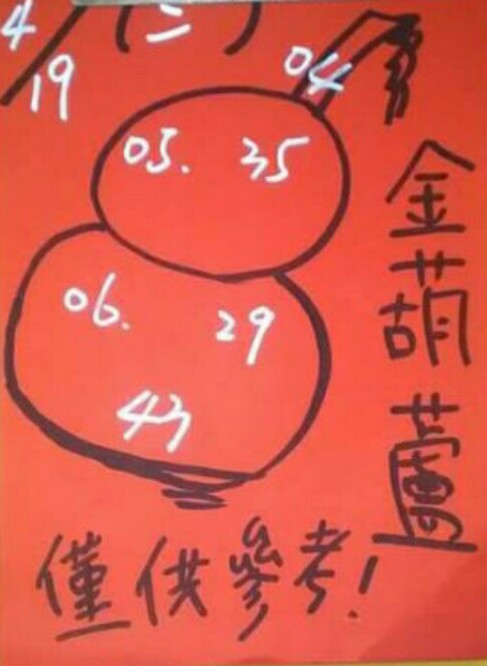 4/19 (二)
04
05. 35
06. 29
43
金葫蘆
僅供參考!